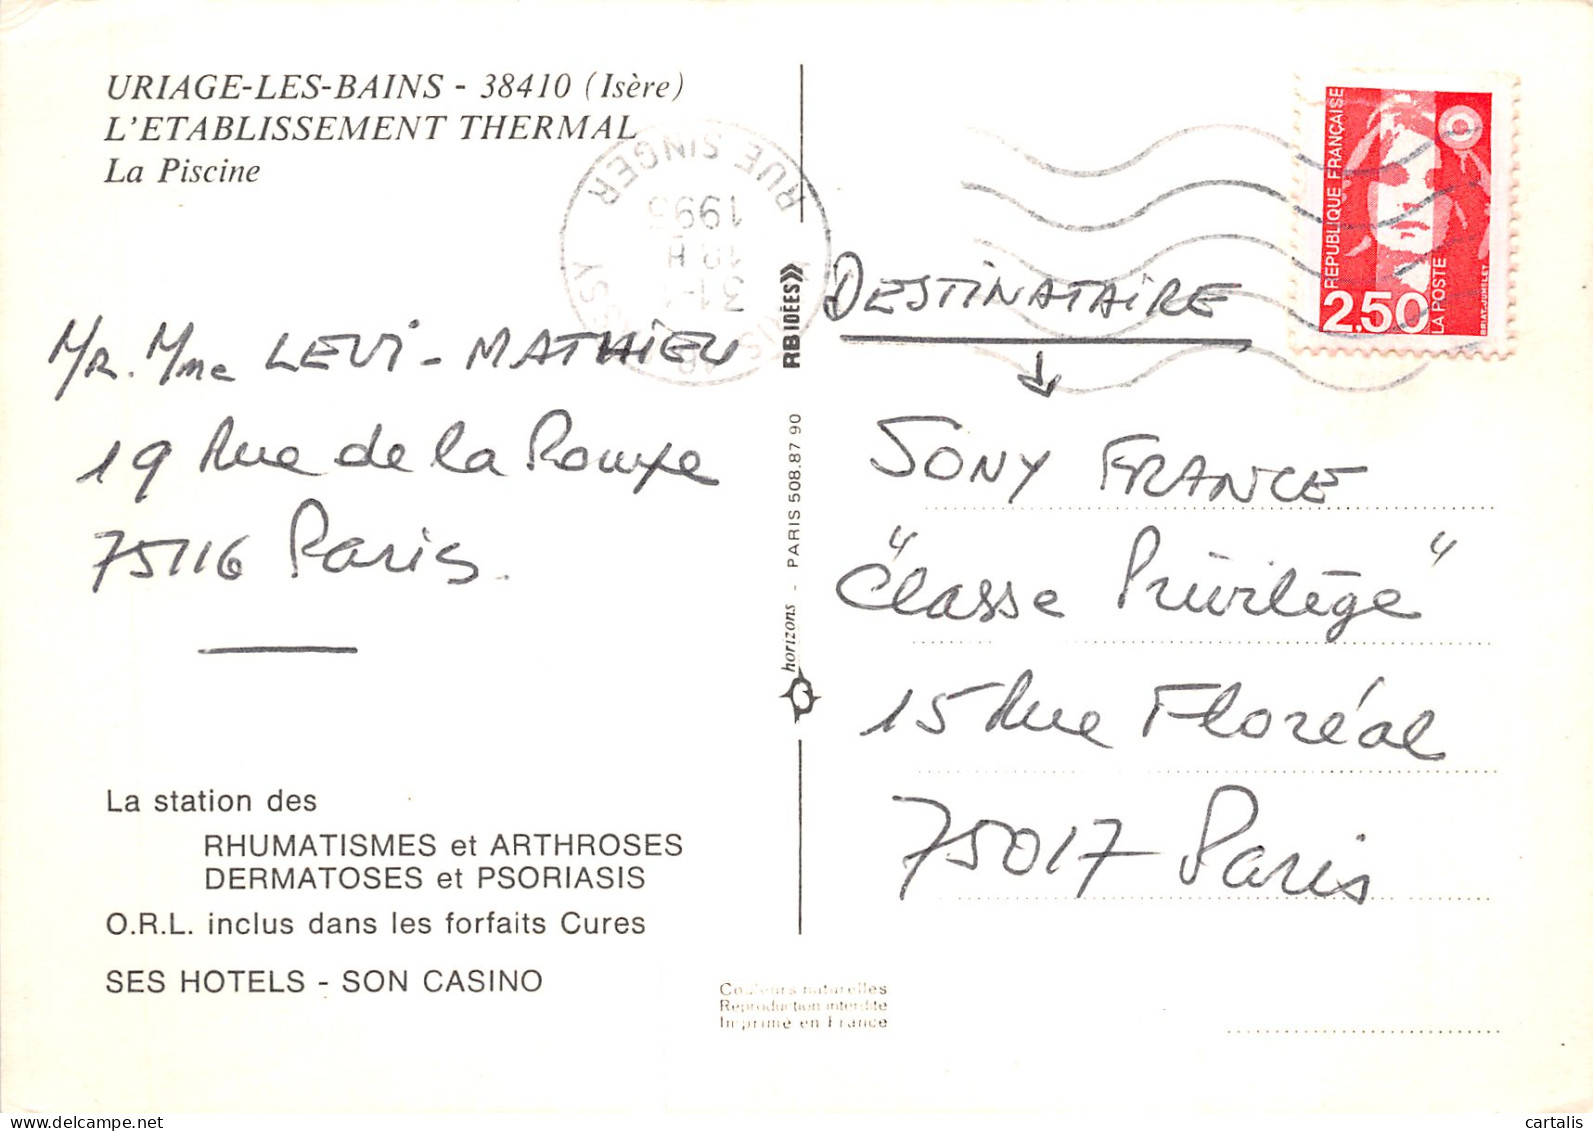 URIAGE-LES-BAINS - 38410 (Isère)
L'ETABLISSEMENT THERMAL
La Piscine
RUE SINGER
1993
18 H
31-
REPUBLIQUE FRANÇAISE
2,50
LA POSTE
BRIAT-JUMELET
Mr. Mme LEVI-MATHIEU
19 Rue de la Pompe
75116 Paris.
RB IDÉES
horizons - PARIS 508.87 90
DESTINATAIRE
SONY FRANCE
"Classe Privilège"
15 Rue Floréal
75017 Paris
La station des
RHUMATISMES et ARTHROSES
DERMATOSES et PSORIASIS
O.R.L. inclus dans les forfaits Cures
SES HOTELS - SON CASINO
Couleurs naturelles
Reproduction interdite
Imprimé en France
cartalis
delcampe.net